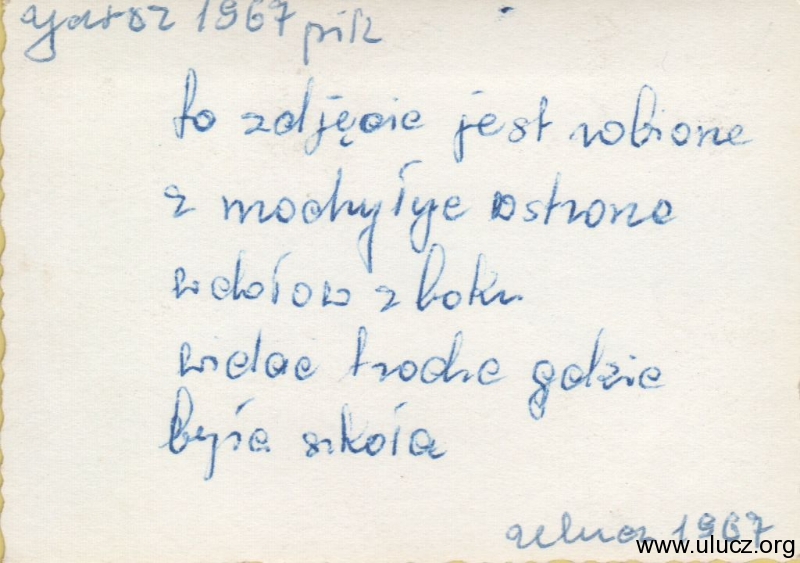 1967
to zdjęcie jest robione
z mochyłye ostrono
wdołow zboku
widac troche gdzie
była szkoła
ulucz 1967
www.ulucz.org